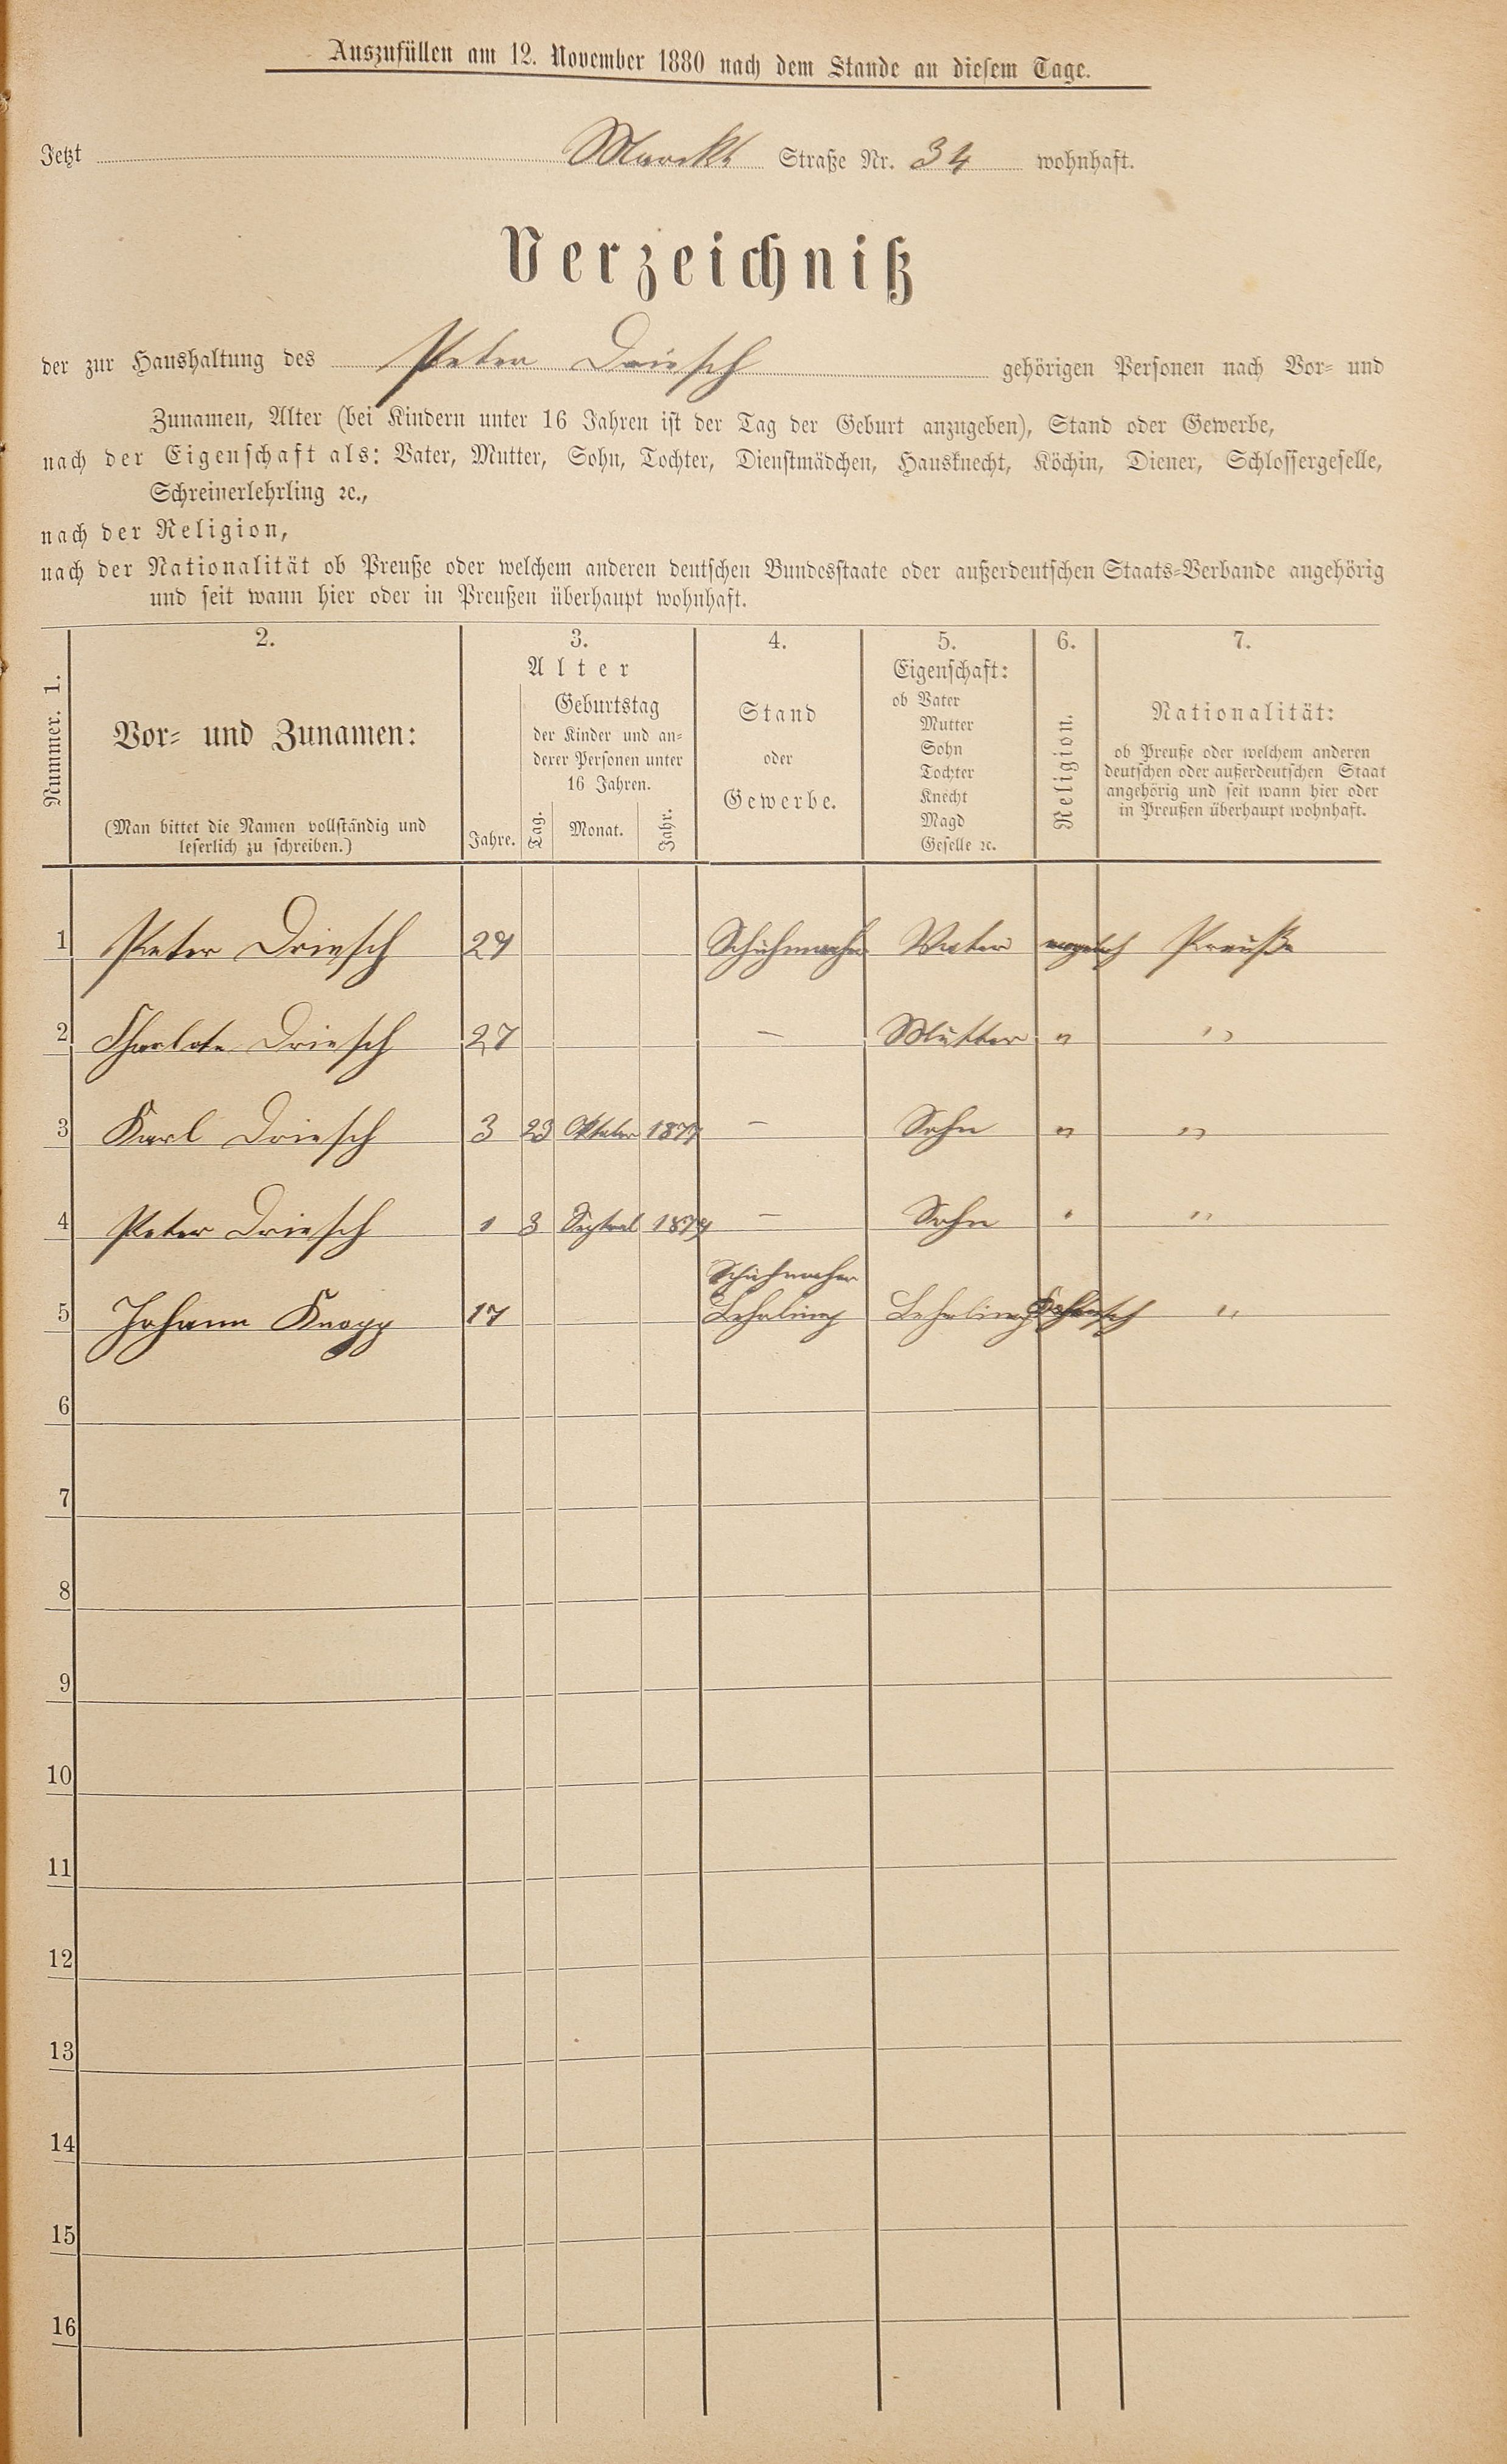 Auszufüllen am 12. November 1880 nach dem Stande an diesem Tage.
Jetzt Marckt Straße Nr. 34 wohnhaft.
Verzeichniß
der zur Haushaltung des Peter Driesch gehörigen Personen nach Vor- und
Zunamen, Alter (bei Kindern unter 16 Jahren ist der Tag der Geburt anzugeben), Stand oder Gewerbe,
nach der Eigenschaft als: Vater, Mutter, Sohn, Tochter, Dienstmädchen, Hausknecht, Köchin, Diener, Schlossergeselle,
Schreinerlehrling ꝛc.,
nach der Religion,
nach der Nationalität ob Preuße oder welchem anderen deutschen Bundesstaate oder außerdeutschen Staats-Verbande angehörig
und seit wann hier oder in Preußen überhaupt wohnhaft.
Nummer. 1.
2.
Vor- und Zunamen:
(Man bittet die Namen vollständig und
leserlich zu schreiben.)
3.
Alter
Jahre.
Geburtstag
der Kinder und an-
derer Personen unter
16 Jahren.
Tag. Monat. Jahr.
4.
Stand
oder
Gewerbe.
5.
Eigenschaft:
ob Vater
Mutter
Sohn
Tochter
Knecht
Magd
Geselle ꝛc.
6.
Religion.
7.
Nationalität:
ob Preuße oder welchem anderen
deutschen oder außerdeutschen Staat
angehörig und seit wann hier oder
in Preußen überhaupt wohnhaft.
1 Peter Driesch 29 Schuhmacher Vater Preuße
2 Charlote Driesch 27 — Mutter " "
3 Karl Driesch 3 23 Oktober 1877 — Sohn " "
4 Peter Driesch 1 3 1879 — Sohn " "
5 Johann Knapp 17 Schuhmacher
Lehrling Lehrling "
6
7
8
9
10
11
12
13
14
15
16